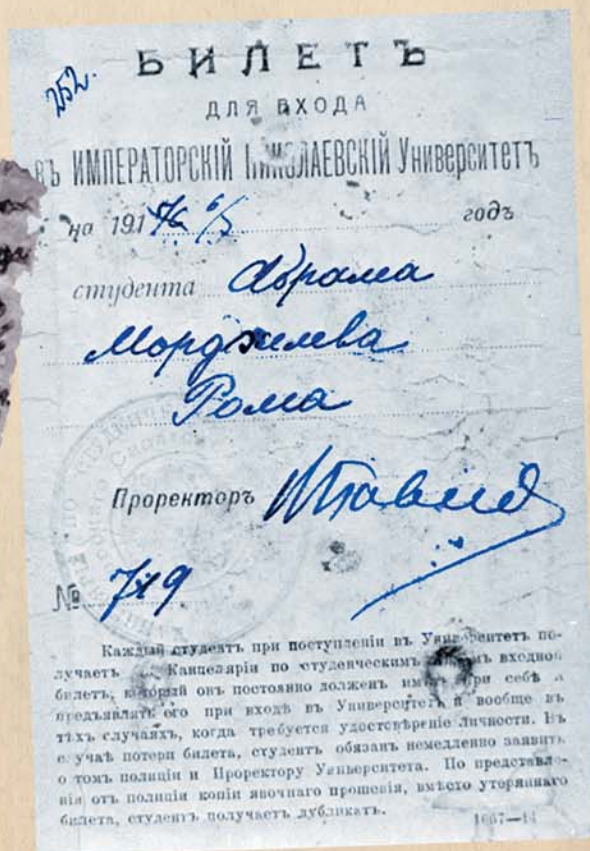 252.
БИЛЕТЪ
ДЛЯ ВХОДА
ВЪ ИМПЕРАТОРСКІЙ НИКОЛАЕВСКІЙ Университетъ
на 191 годъ
студента Абрама
Мордхелева
Рома
Проректоръ
№ 719
Каждый студентъ при поступленіи въ Университетъ по-
лучаетъ Канцеляріи по студенческимъ входной
билетъ, который онъ постоянно долженъ имѣть при себѣ и
предъявлять его при входѣ въ Университетъ и вообще въ
тѣхъ случаяхъ, когда требуется удостовѣреніе личности. Въ
случаѣ потери билета, студентъ обязанъ немедленно заявить
о томъ полиціи и Проректору Университета. По представле-
нія отъ полиціи копіи явочнаго прошенія, вмѣсто утеряннаго
билета, студентъ получаетъ дубликатъ.